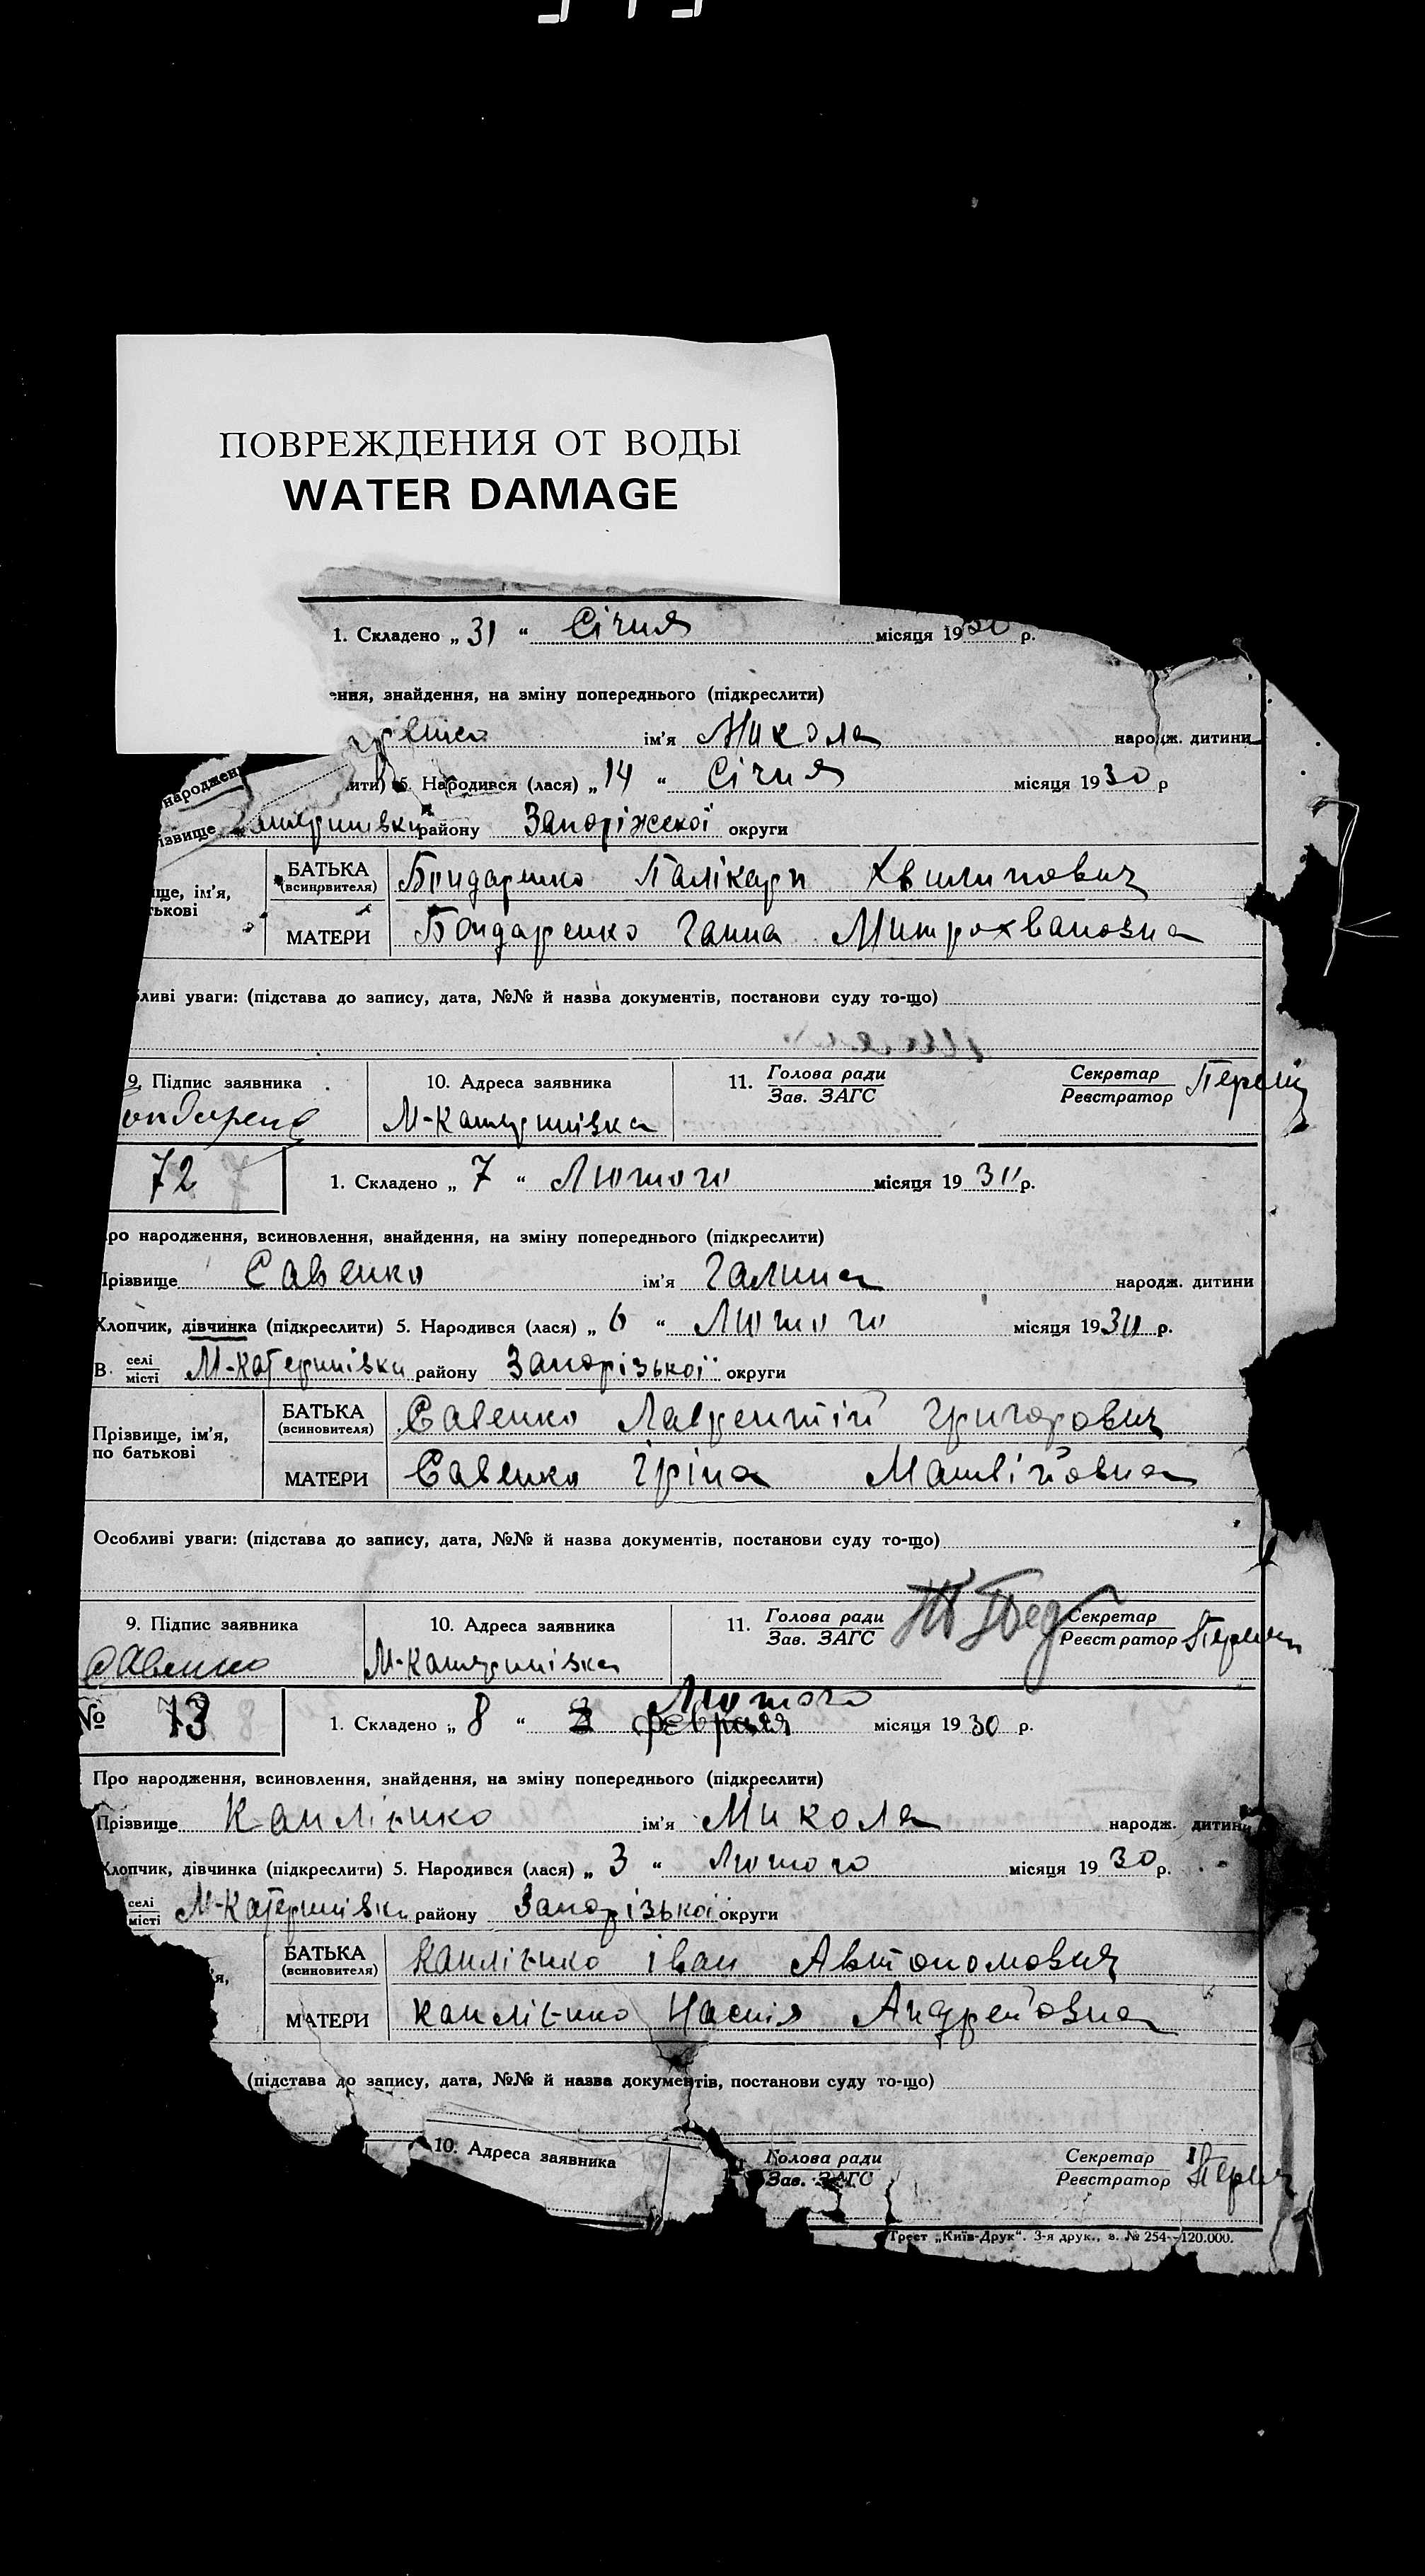 ПОВРЕЖДЕНИЯ ОТ ВОДЫ
WATER DAMAGE
1. Складено „ 31 “ Січня місяця 1930 р.
ення, знайдення, на зміну попереднього (підкреслити)
ім'я Микола народж. дитини
народжен
ити) 5. Народився (лася) „ 14 “ Січня місяця 1930 р
ізвище району Запоріжської округи
БАТЬКА (всиновителя) Бондаренко Палікарп Хвилипович
ище, ім'я,
тькові
МАТЕРИ Бондаренко Ганна Митрохвановна
бливі уваги: (підстава до запису, дата, №№ й назва документів, постанови суду то-що)
9. Підпис заявника 10. Адреса заявника 11. Голова ради Зав. ЗАГС Секретар Реєстратор
М-Катеринівка
72 1. Складено „ 7 “ Лютого місяця 1930 р.
ро народження, всиновлення, знайдення, на зміну попереднього (підкреслити)
Прізвище Савенко ім'я Галина народж. дитини
Хлопчик, дівчинка (підкреслити) 5. Народився (лася) „ 6 “ Лютого місяця 1930 р.
В селі місті М-Катеринівки району Запорізької округи
БАТЬКА (всиновителя) Савенко Лаврентій Григорович
Прізвище, ім'я,
по батькові
МАТЕРИ Савенко Іріна Матвійовна
Особливі уваги: (підстава до запису, дата, №№ й назва документів, постанови суду то-що)
9. Підпис заявника 10. Адреса заявника 11. Голова ради Зав. ЗАГС Секретар Реєстратор
Савенко М-Катеринівка
Лютого
№ 73 1. Складено „ 8 “ 2 февраля місяця 1930 р.
Про народження, всиновлення, знайдення, на зміну попереднього (підкреслити)
Прізвище Каплієнко ім'я Микола народж. дитини
Хлопчик, дівчинка (підкреслити) 5. Народився (лася) „ 3 “ Лютого місяця 1930 р.
селі місті М-Катеринівки району Запорізької округи
БАТЬКА (всиновителя) Каплієнко Іван Автономович
я,
МАТЕРИ Каплієнко Настя Андрейовна
(підстава до запису, дата, №№ й назва документів, постанови суду то-що)
10. Адреса заявника Голова ради Зав. ЗАГС Секретар Реєстратор
Трест „Київ-Друк“. 3-я друк., з. № 254—120.000.